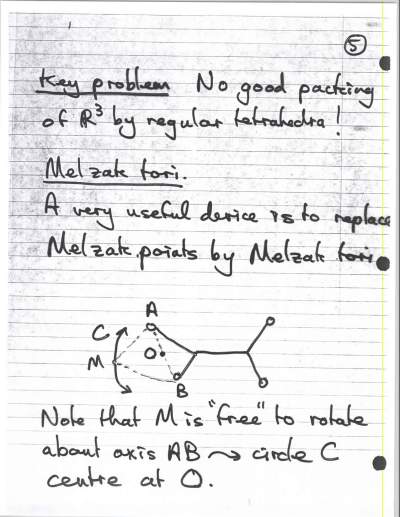 5
Key problem No good packing
of R³ by regular tetrahedra!
Melzak tori.
A very useful device is to replace
Melzak points by Melzak tori
A
C
M
O
B
Note that M is "free" to rotate
about axis AB ⤳ circle C
centre at O.